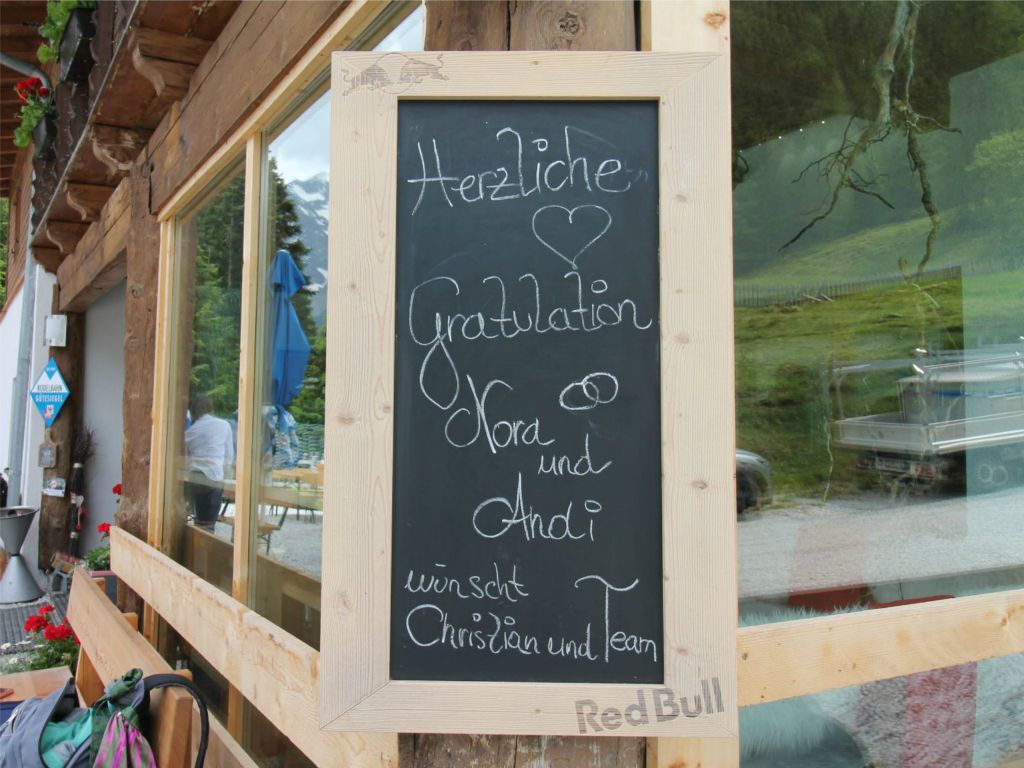 Herzliche
Gratulation
Nora
und
Andi
wünscht
Christian und Team
Red Bull
RODELBAHN
GÜTESIEGEL